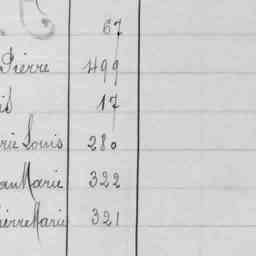 67
Pierre 499
17
rie Louis 280
an Marie 322
ierre Marie 321